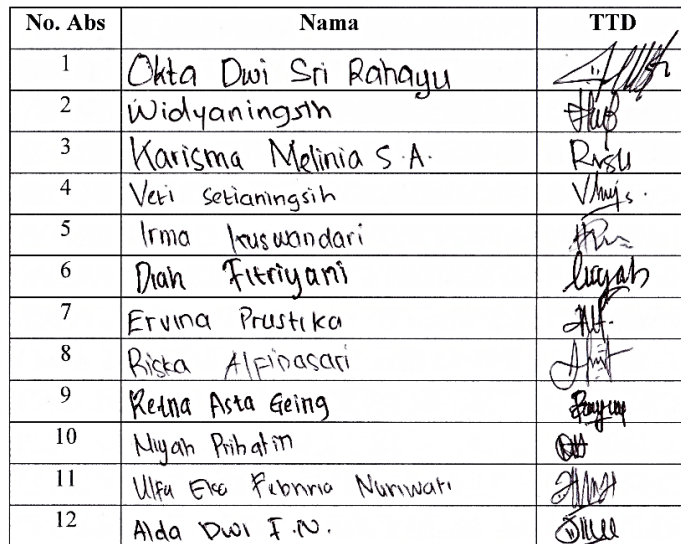 No. Abs Nama TTD
1 Okta Dwi Sri Rahayu
2 Widyaningsih
3 Karisma Melinia S.A.
4 Veti Setianingsih
5 Irma kuswandari
6 Diah Fitriyani
7 Ervina Prustika
8 Riska Alfinasari
9 Retna Asta Geing
10 Niyah Prihatin
11 Ulfa Eka Nuriwati
12 Alda Dwi F.N.